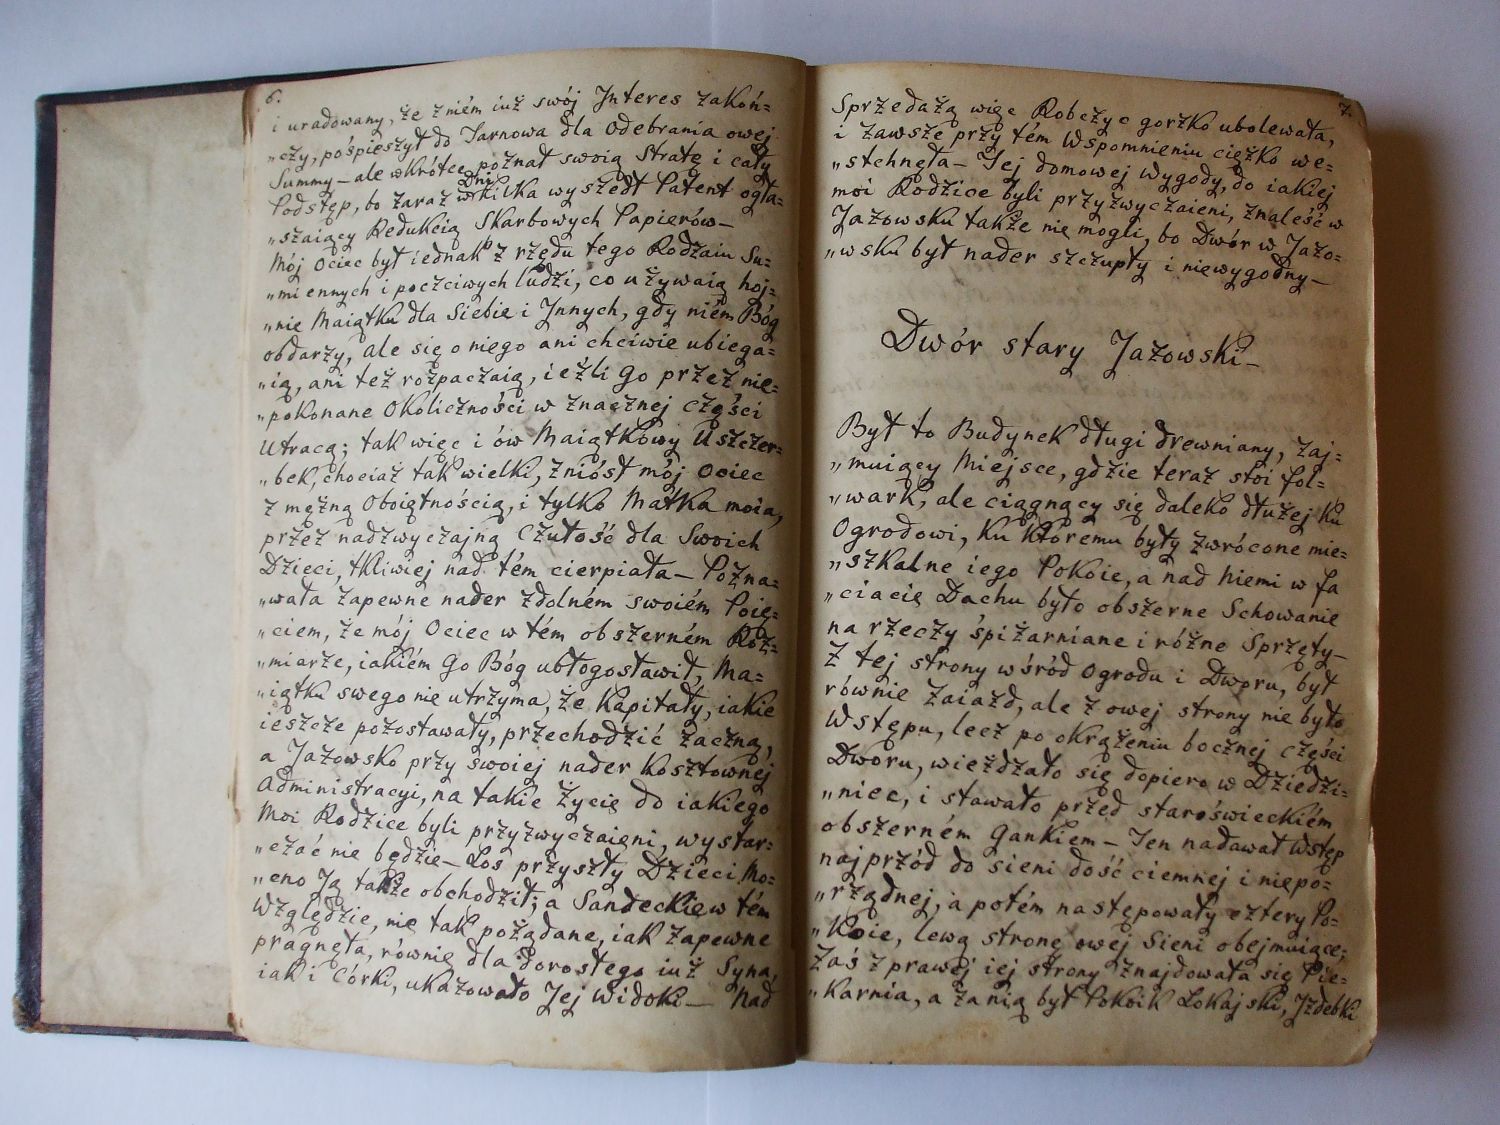 6.
i uradowany, że z niém iuż swój Interes zakoń=
„czy, pośpieszył do Tarnowa dla odebrania owej
Summy — ale wkrótce poznał swoią Stratę i cały
Podstęp, bo zaraz w Dni kilka wyszedł Patent ogła=
„szaiący Redukcią Skarbowych Papierów —
Mój Ociec był iednak z rzędu tego Rodzaiu Su=
„miennych i poczciwych ludzi, co używaią hoj=
„nie Maiątku dla Siebie i Innych, gdy niém Bóg
obdarzy, ale się o niego ani chciwie ubiega=
„ią, ani też rozpaczaią, ieźli go przez nie=
„pokonane Okoliczności w znacznej części
utracą; tak więc i ów Maiątkowy Uszczer=
„bek, chociaż tak wielki, zniósł mój Ociec
z mężną Oboiętnością, i tylko Matka moia,
przez nadzwyczajną Czułość dla Swoich
Dzieci, tkliwiej nad tém cierpiała — Pozna=
„wała zapewne nader zdolném swoiém Poię=
„ciem, że mój Ociec w tém obszerném Roz=
„miarze, iakiém Go Bóg ubłogosławił, Ma=
„iątku swego nie utrzyma, że Kapitały, iakie
ieszcze pozostawały, przechodzić zaczną,
a Jazowsko przy swoiej nader kosztownej
Administracyi, na takie życie do iakiego
Moi Rodzice byli przyzwyczaieni, wystar=
„czać nie będzie — Los przyszły Dzieci Mo=
„cno Ją także obchodził; a Sandeckie w tém
Względzie, nie tak pożądane, iak zapewne
pragnęła, równie dla dorosłego iuż Syna,
iak i Córki, ukazowało Jej Widoki — Nad
7.
Sprzedażą więc Robczyc gorzko ubolewała,
i zawsze przy tém Wspomnieniu ciężko we=
„stchnęła — Tej domowej Wygody, do iakiej
moi Rodzice byli przyzwyczaieni, znaleść w
Jazowsku także nie mogli, bo Dwór w Jazo=
„wsku był nader szczupły i niewygodny —
Dwór stary Jazowski —
Był to Budynek długi drewniany, zaj=
„muiący Miejsce, gdzie teraz stoi fol=
„wark, ale ciągnący się daleko dłużej ku
Ogrodowi, ku któremu były zwrócone mie=
„szkalne iego Pokoie, a nad niemi w fa
„ciacie Dachu było obszerne Schowanie
na rzeczy śpiżarniane i różne Sprzęty —
Z tej strony wśród Ogrodu i Dworu, był
równie Zaiazd, ale z owej strony nie było
Wstępu, lecz po okrążeniu bocznej części
Dworu, wieżdzało się dopiero w Dziedzi=
„niec, i stawało przed staroświeckiém
obszerném Gankiem — Ten nadawał Wstęp
najprzód do sieni dość ciemnej i niepo=
„rządnej, a potém następowały cztery Po=
„koie, lewą stronę owej Sieni obejmuiące;
Zaś z prawej iej strony znajdowała się Pie=
„karnia, a za nią był Pokoik Lokajski, Izdebki